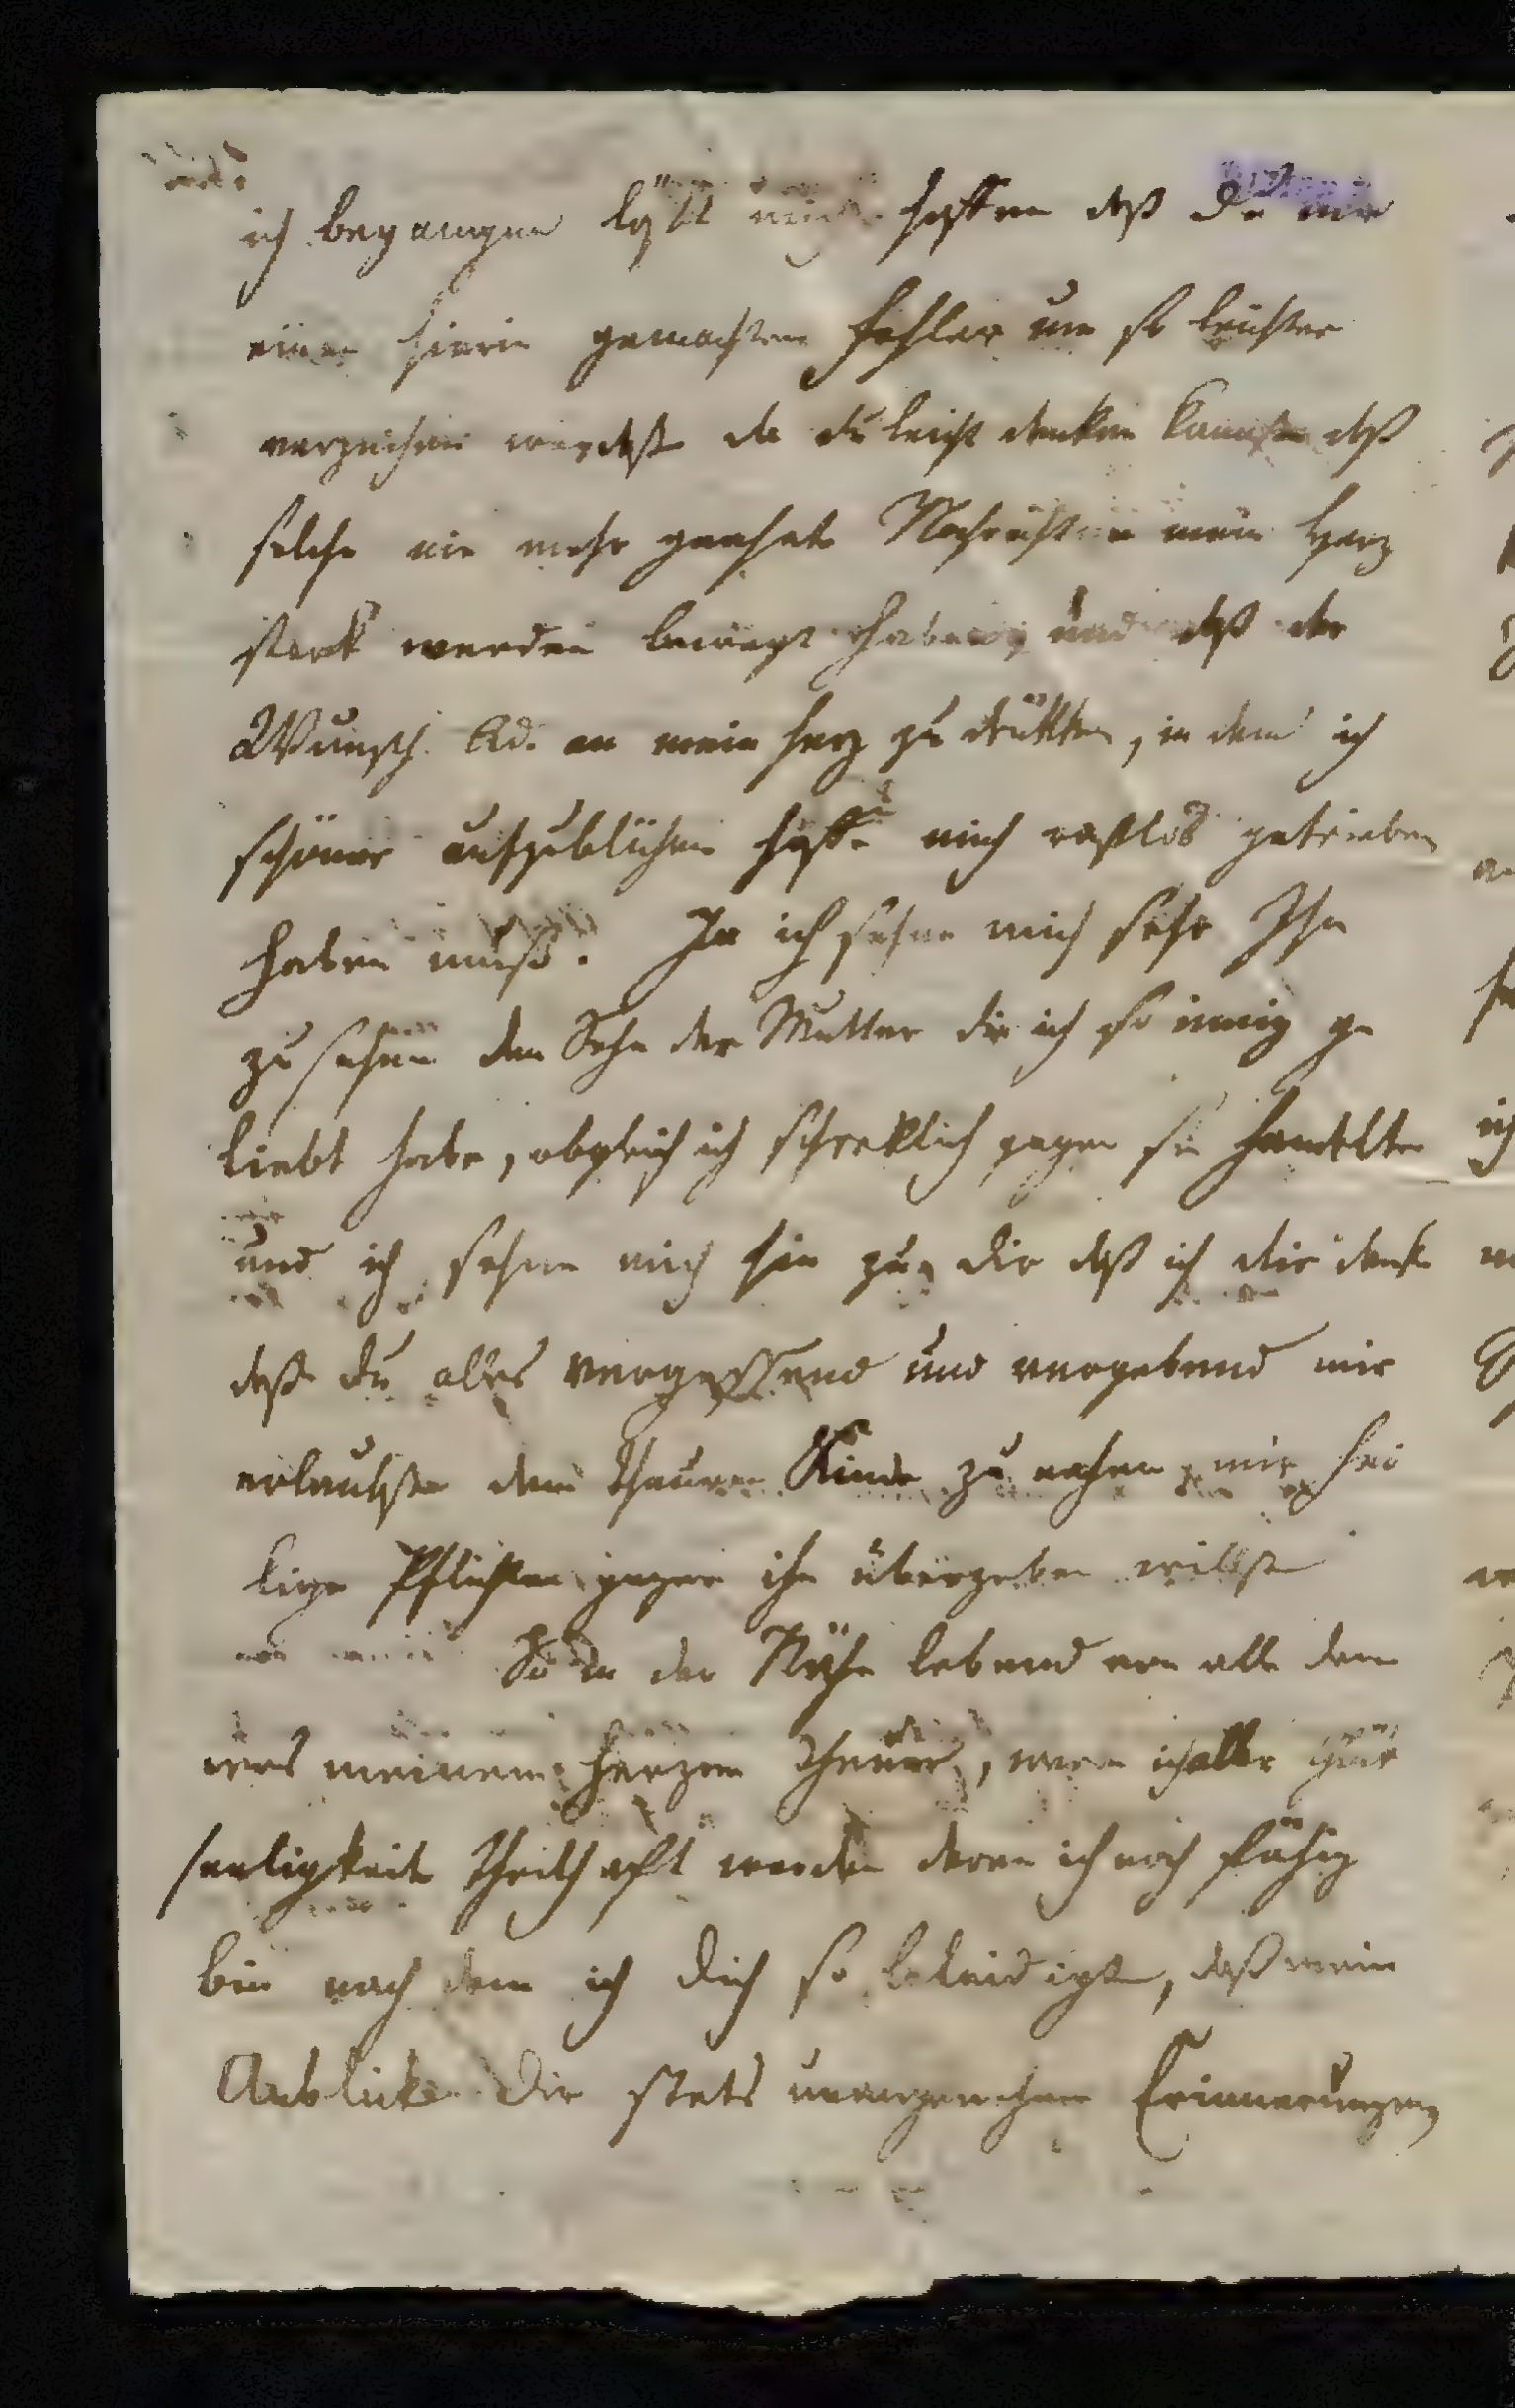 ich begangen läßt mich hoffen daß Du mir
einen hierin gemachten Fehler um so leichter
verzeihen werdest da du leicht denken kannst daß
solche nie mehr geahnte Nachrichten mein Herz
stark werden bewegt haben, und daß der
Wunsch Ad. an mein Herz zu drükken, in dem ich
schöner aufzublühen hoffe mich rastlos getrieben
haben muß. Ja ich sehne mich sehr Ihn
zu sehen den Sohn der Mutter die ich so innig ge
liebt habe, obgleich ich schreklich gegen sie handelte
und ich sehne mich hin zu dir daß ich dir danke
daß du alles vergessend und vergebend mir
erlaubst dem theuren Kinde zu nahen, mir hei
lige Pflichten gegen ihn übergeben willst
So in der Nähe lebend von alle dem
was meinem Herzen theuer, werde ich aller
seeligkeit theilhaft werden deren ich noch fähig
bin nach dem ich dich so beleidigte, daß mein
Anblick Dir stets unangenehme Erinnerungen